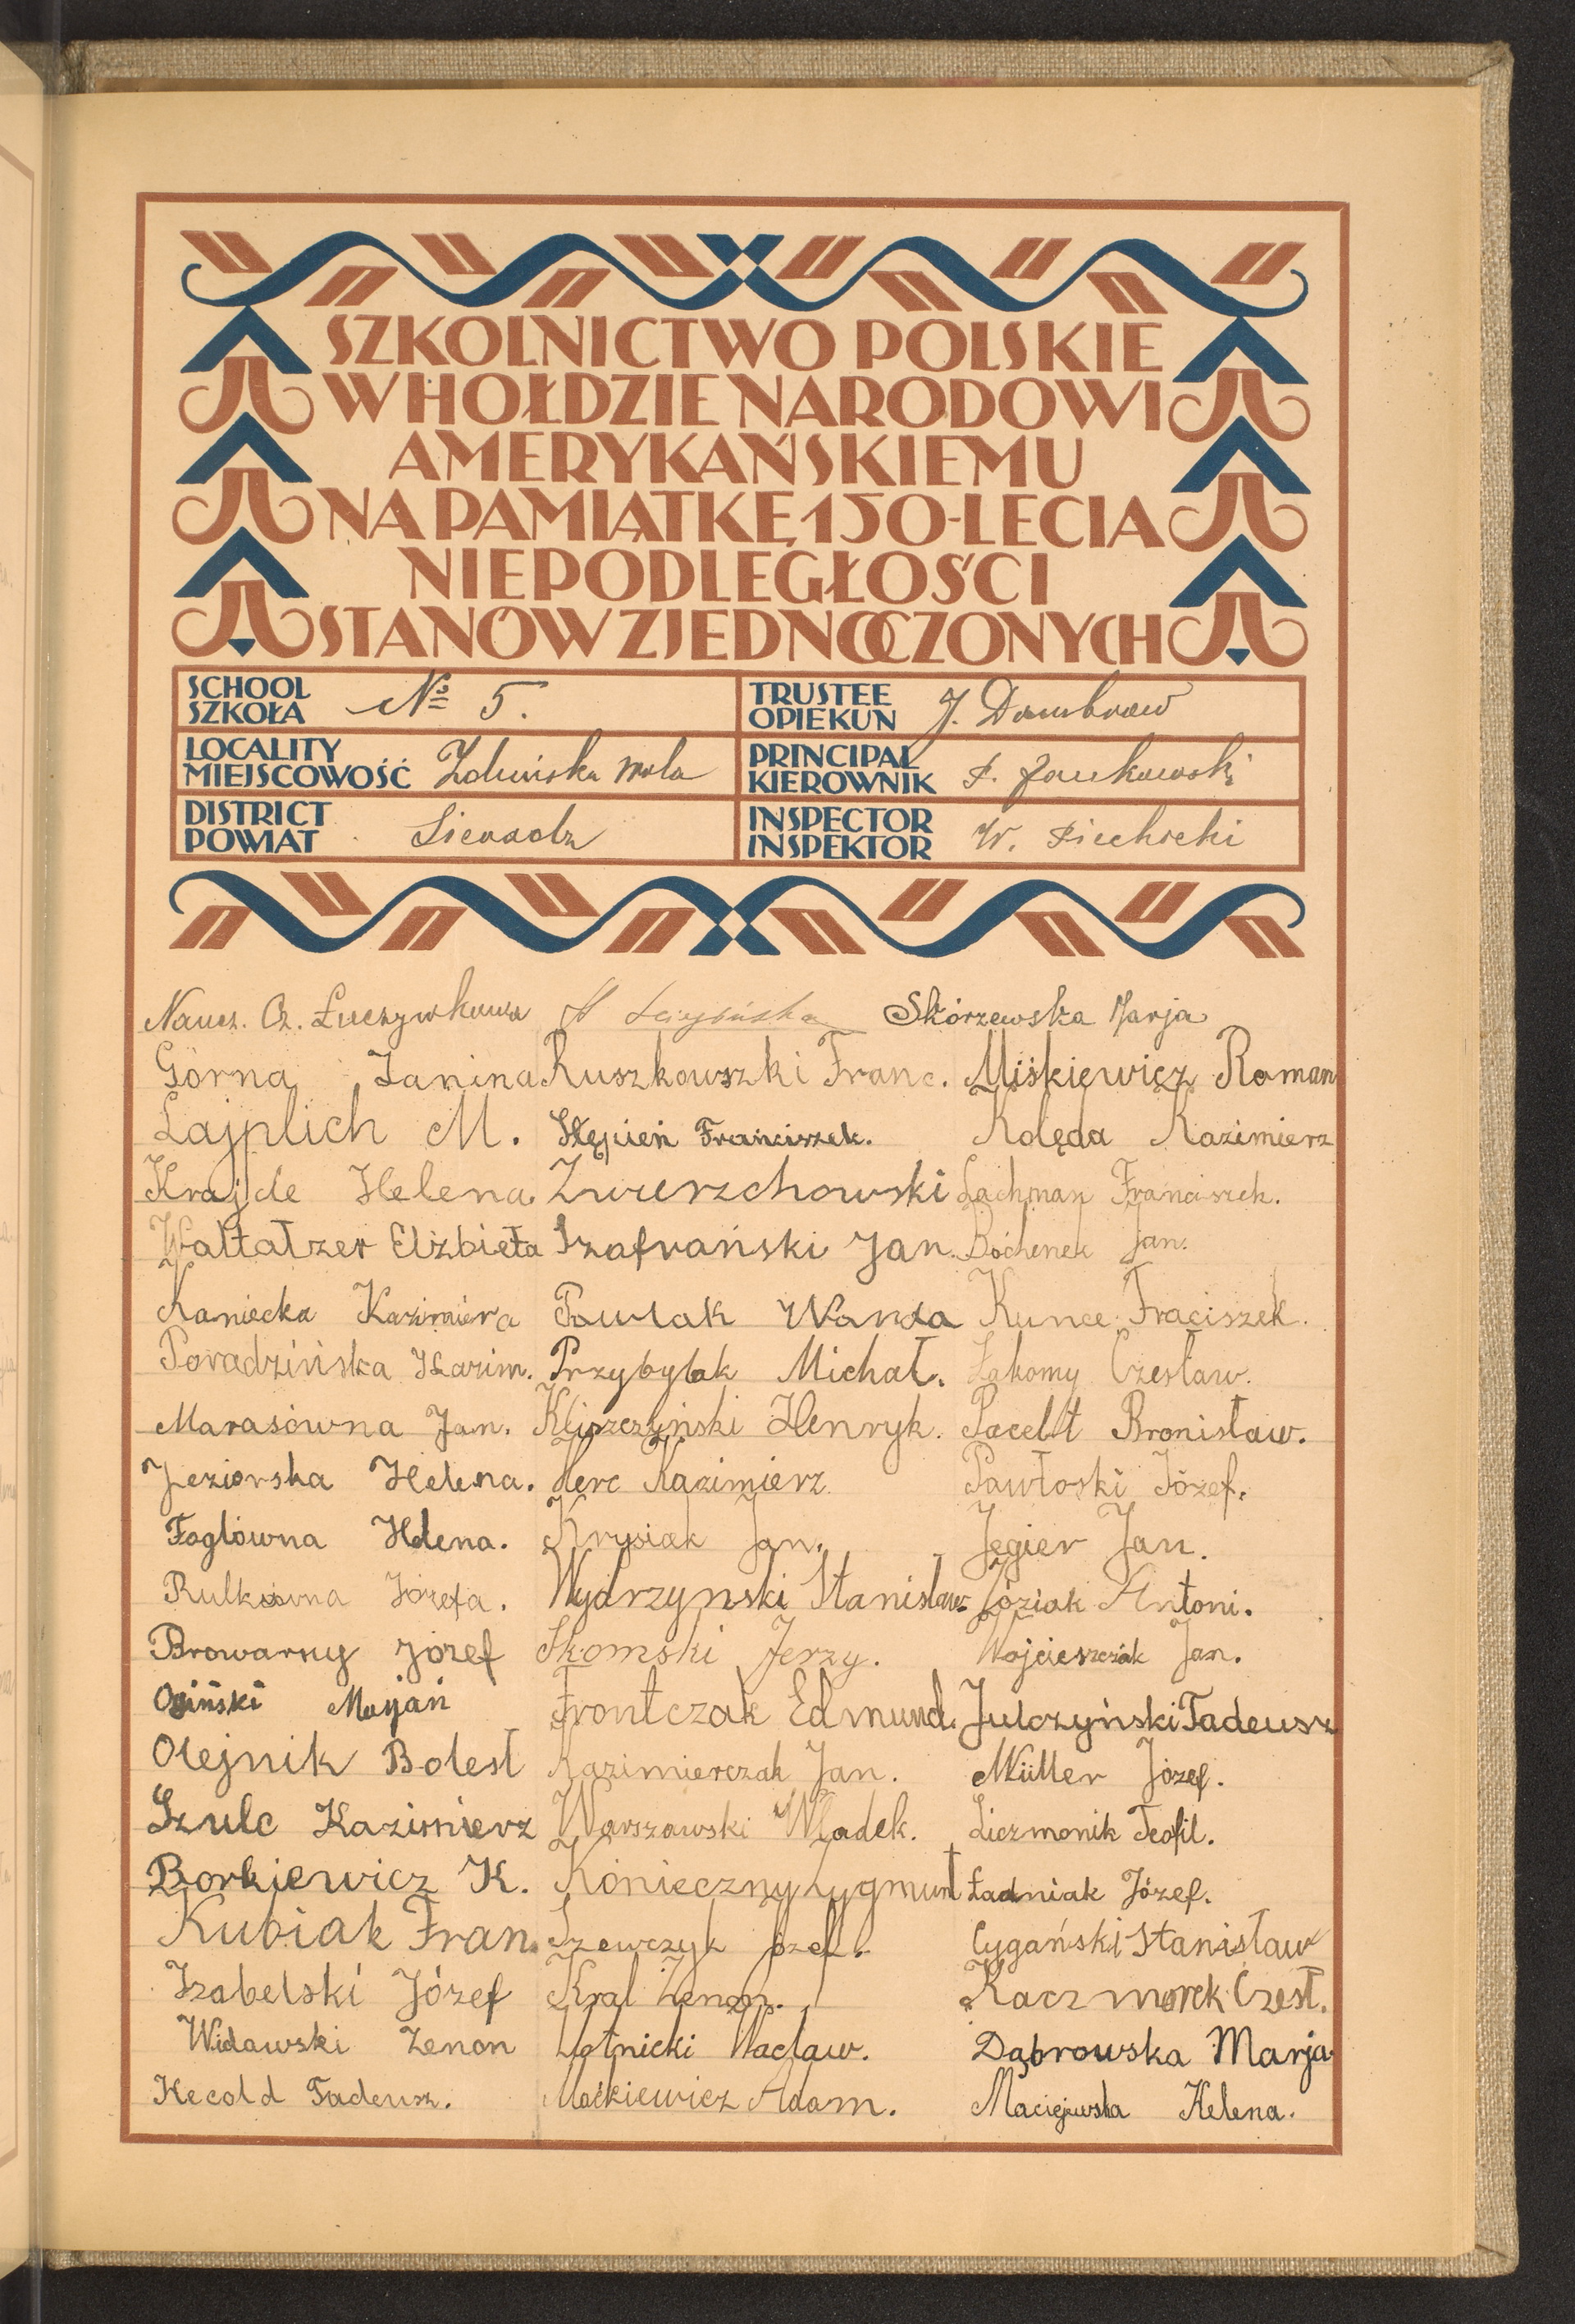 SZKOLNICTWO POLSKIE
W HOŁDZIE NARODOWI
AMERYKAŃSKIEMU
NA PAMIĄTKĘ 150-LECIA
NIEPODLEGŁOŚCI
STANÓW ZJEDNOCZONYCH
SCHOOL SZKOŁA № 5. TRUSTEE OPIEKUN J. Dombrow
LOCALITY MIEJSCOWOŚĆ Zduńska Wola PRINCIPAL KIEROWNIK F. Jankowski
DISTRICT POWIAT Sieradz INSPECTOR INSPEKTOR W. Piechocki
Naucz. Cz. Łuczywkowa Skórzewska Marja
Górna Janina Ruszkowszki Franc. Miśkięwicz Roman
Lajplich M. Stępień Franciszek. Kolęda Kazimierz
Krajde Helena Zwierzchowski Lachman Franciszek.
Waltatzer Elżbieta Szafrański Jan. Bochenek Jan.
Kaniecka Kazimiera Pawlak Wanda Kunce Fraciszek.
Poradzińska Kazim. Przybylak Michał. Łakomy Czesław.
Marasówna Jan. Kliszczyński Henryk. Pacelt Bronisław.
Jeziorska Helena. Herc Kazimierz Pawłoski Józef.
Foglówna Helena. Krysiak Jan. Jegier Jan.
Rulkówna Józefa. Wydrzynski Stanisław Józiak Antoni.
Browarny Józef Skomski Jerzy. Wojcieszczak Jan.
Osiński Marjan Frontczak Edmund. Julczyński Tadeusz
Olejnik Bolesł Kazimierczak Jan. Müller Józef.
Szulc Kazimierz Warszawski Władek. Liczmonik Teofil.
Borkiewicz K. Konieczny Zygmunt Ładniak Józef.
Kubiak Fran. Szewczyk Józef. Cygański Stanisław
Izabelski Józef Kral Zenon. Kaczmorek Czesł.
Widawski Zenon Złotnicki Wacław. Dąbrowska Marja
Hecold Tadeusz. Maćkiewicz Adam. Maciejewska Helena.